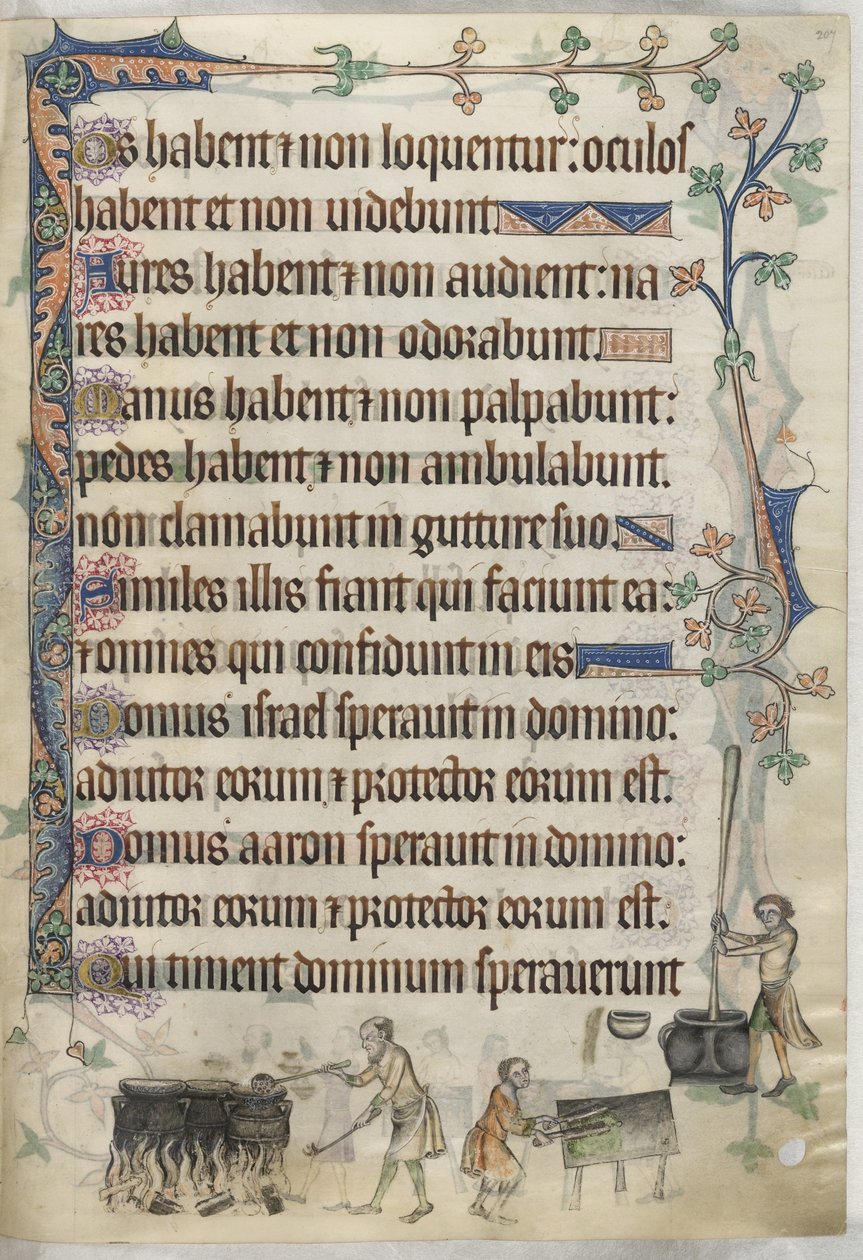 207
Os habent ⁊ non loquentur: oculos
habent et non uidebunt
Aures habent ⁊ non audient: na
res habent et non odorabunt.
Manus habent ⁊ non palpabunt:
pedes habent ⁊ non ambulabunt.
non clamabunt in gutture suo.
Similes illis fiant qui faciunt ea:
⁊ omnes qui confidunt in eis
Domus israel sperauit in domino:
adiutor eorum ⁊ protector eorum est.
Domus aaron sperauit in domino:
adiutor eorum ⁊ protector eorum est.
Qui timent dominum sperauerunt